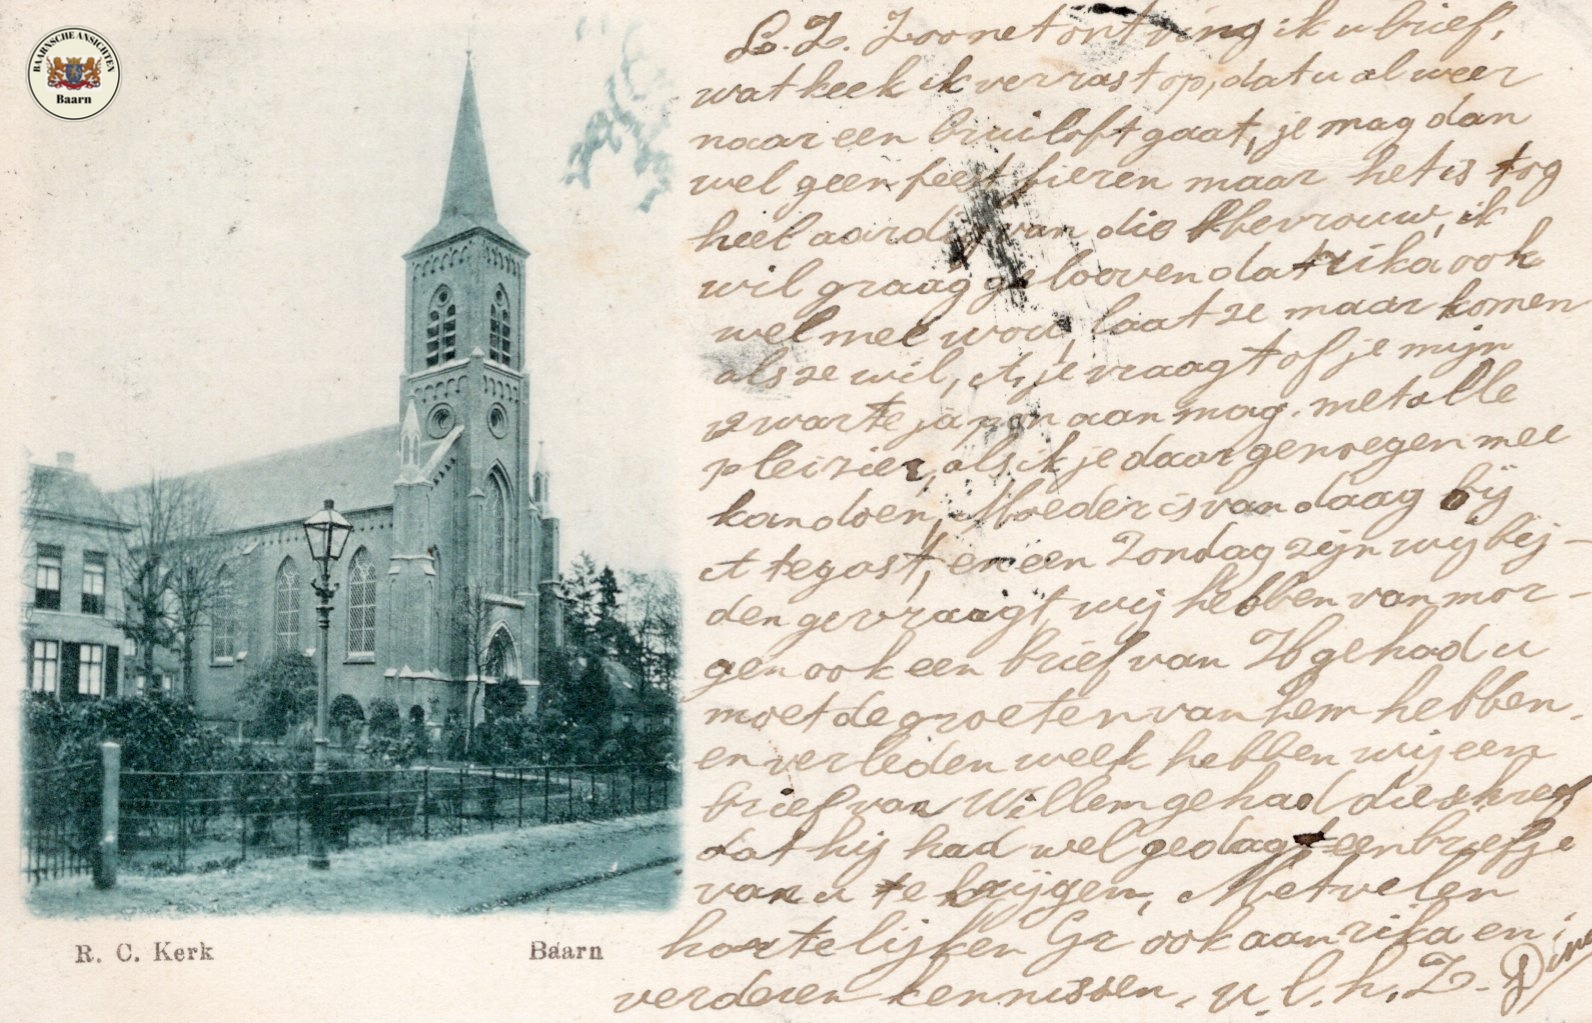 BAARNSCHE ANSICHTEN
Baarn
L. Z. Zoo net ontving ik u brief,
wat keek ik verrast op, dat u al weer
naar een bruiloft gaat, je mag dan
wel geen feest fieren maar het is tog
heel aardig van die Mevrouw, ik
wil graag gelooven dat rika ook
wel mee wou, laat ze maar komen
als ze wil, et, je vraagt of je mijn
zwarte japon aan mag. met alle
pleizier, als ik je daar genoegen mee
kan doen, Moeder is van daag bij
et te gast, en een Zondag zijn wij bej-
den gevraagt, wij hebben van mor-
gen ook een brief van H gehad u
moet de groeten van hem hebben.
en verleden week hebben wij een
brief van Willem gehad die skreef
dat hij had wel gedagt een briefje
van u te krijgen, Met velen
hartelijken Gr ook aan rika en
verderen kennissen. u. l. h. Z. Dina
R. C. Kerk
Baarn